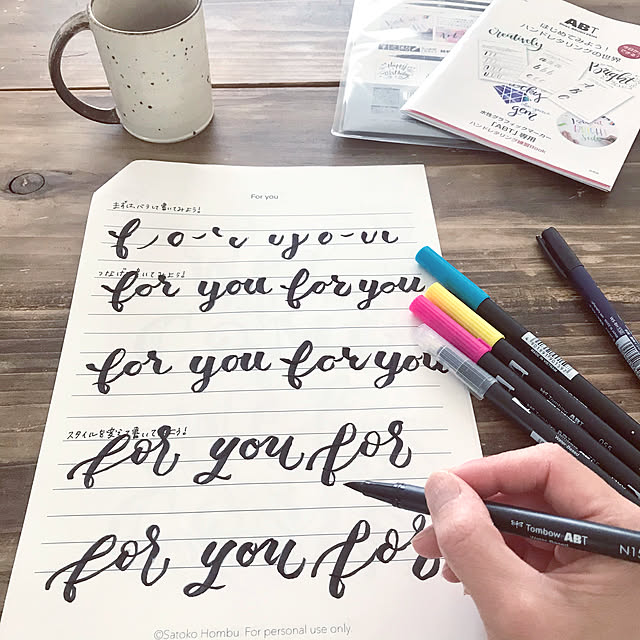 ABT
はじめてみよう！
ハンドレタリングの世界
Creatively
水性グラフィックマーカー
「ABT」専用
ハンドレタリング練習Book
For you
まずは、バラして書いてみよう！
f o you o
つなげて書いてみよう！
for you for you
for you for you
スタイルを変えて書いてみよう！
for you for
for you for
Tombow ABT
N15
©Satoko Hombu. For personal use only.